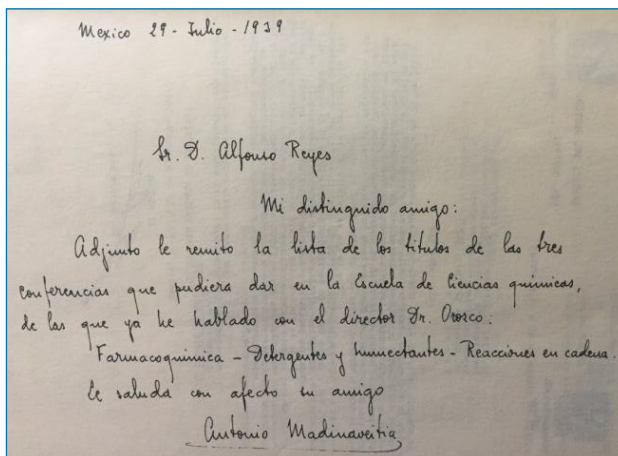 Mexico 29 - Julio - 1939
Sr. D. Alfonso Reyes
Mi distinguido amigo:
Adjunto le remito la lista de los titulos de las tres
conferencias que pudiera dar en la Escuela de Ciencias quimicas,
de las que ya he hablado con el director Dr. Orozco:
Farmacoquimica - Detergentes y humectantes - Reacciones en cadena.
Le saluda con afecto su amigo
Antonio Madinaveitia